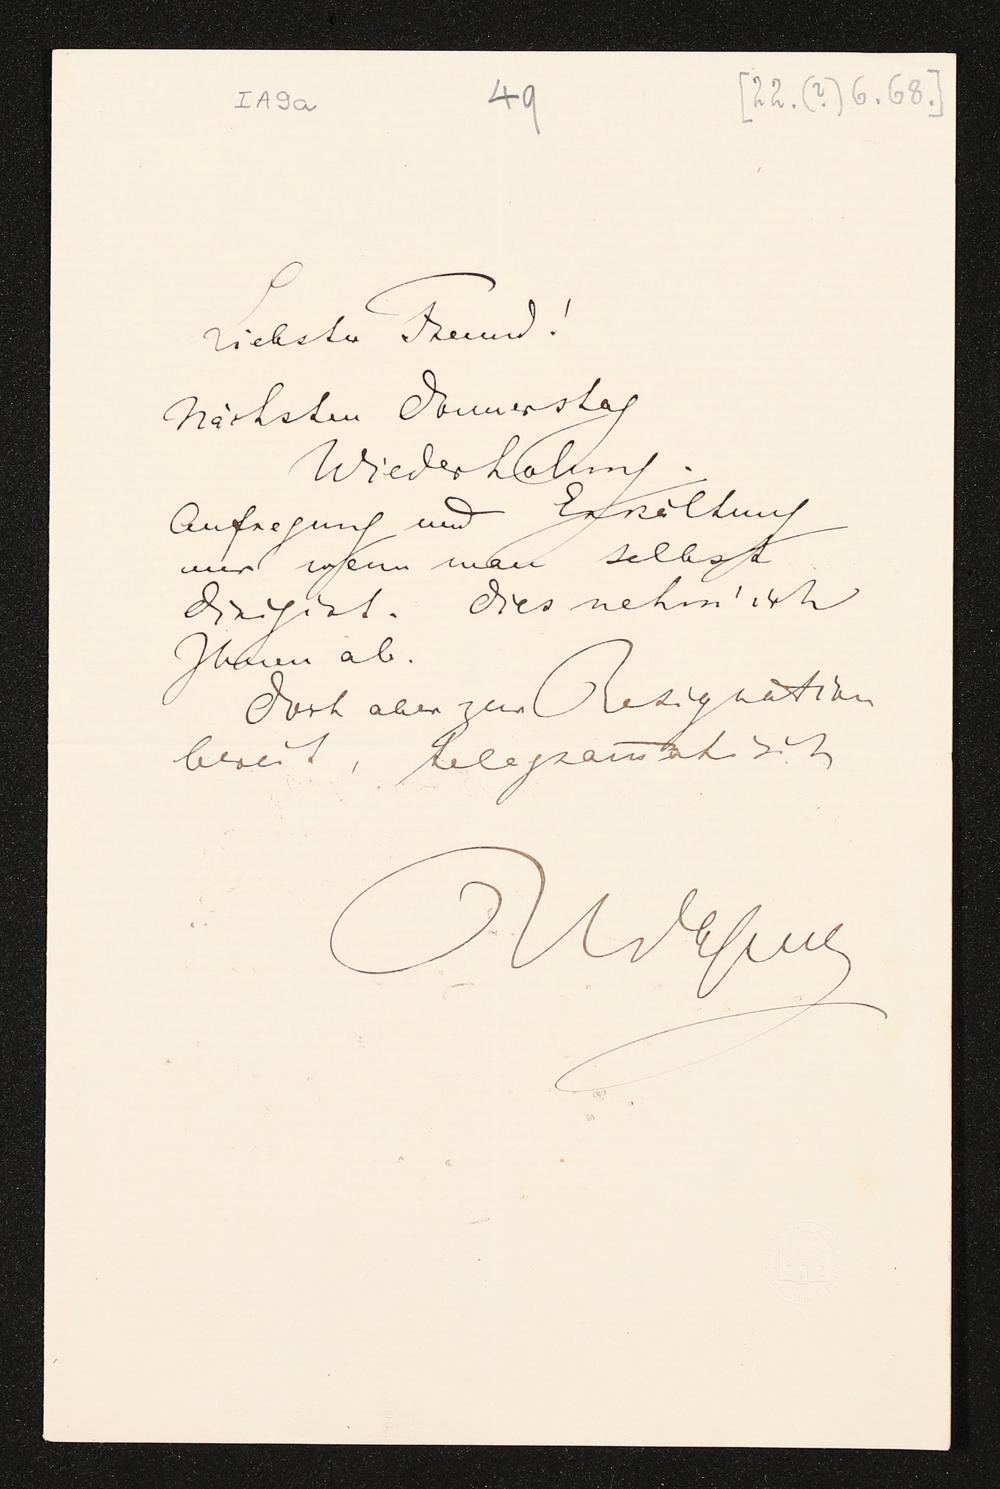 IA9a
49
[22.(?)6.68.]
Liebster Freund!
Nächsten Donnerstag
Wiederholung.
Aufregung und Erkältung
nur wenn man selbst
dirigirt. Dies nehm' ich
Ihnen ab.
Doch aber zur Resignation
bereit, telegram̅atisch
RWagner